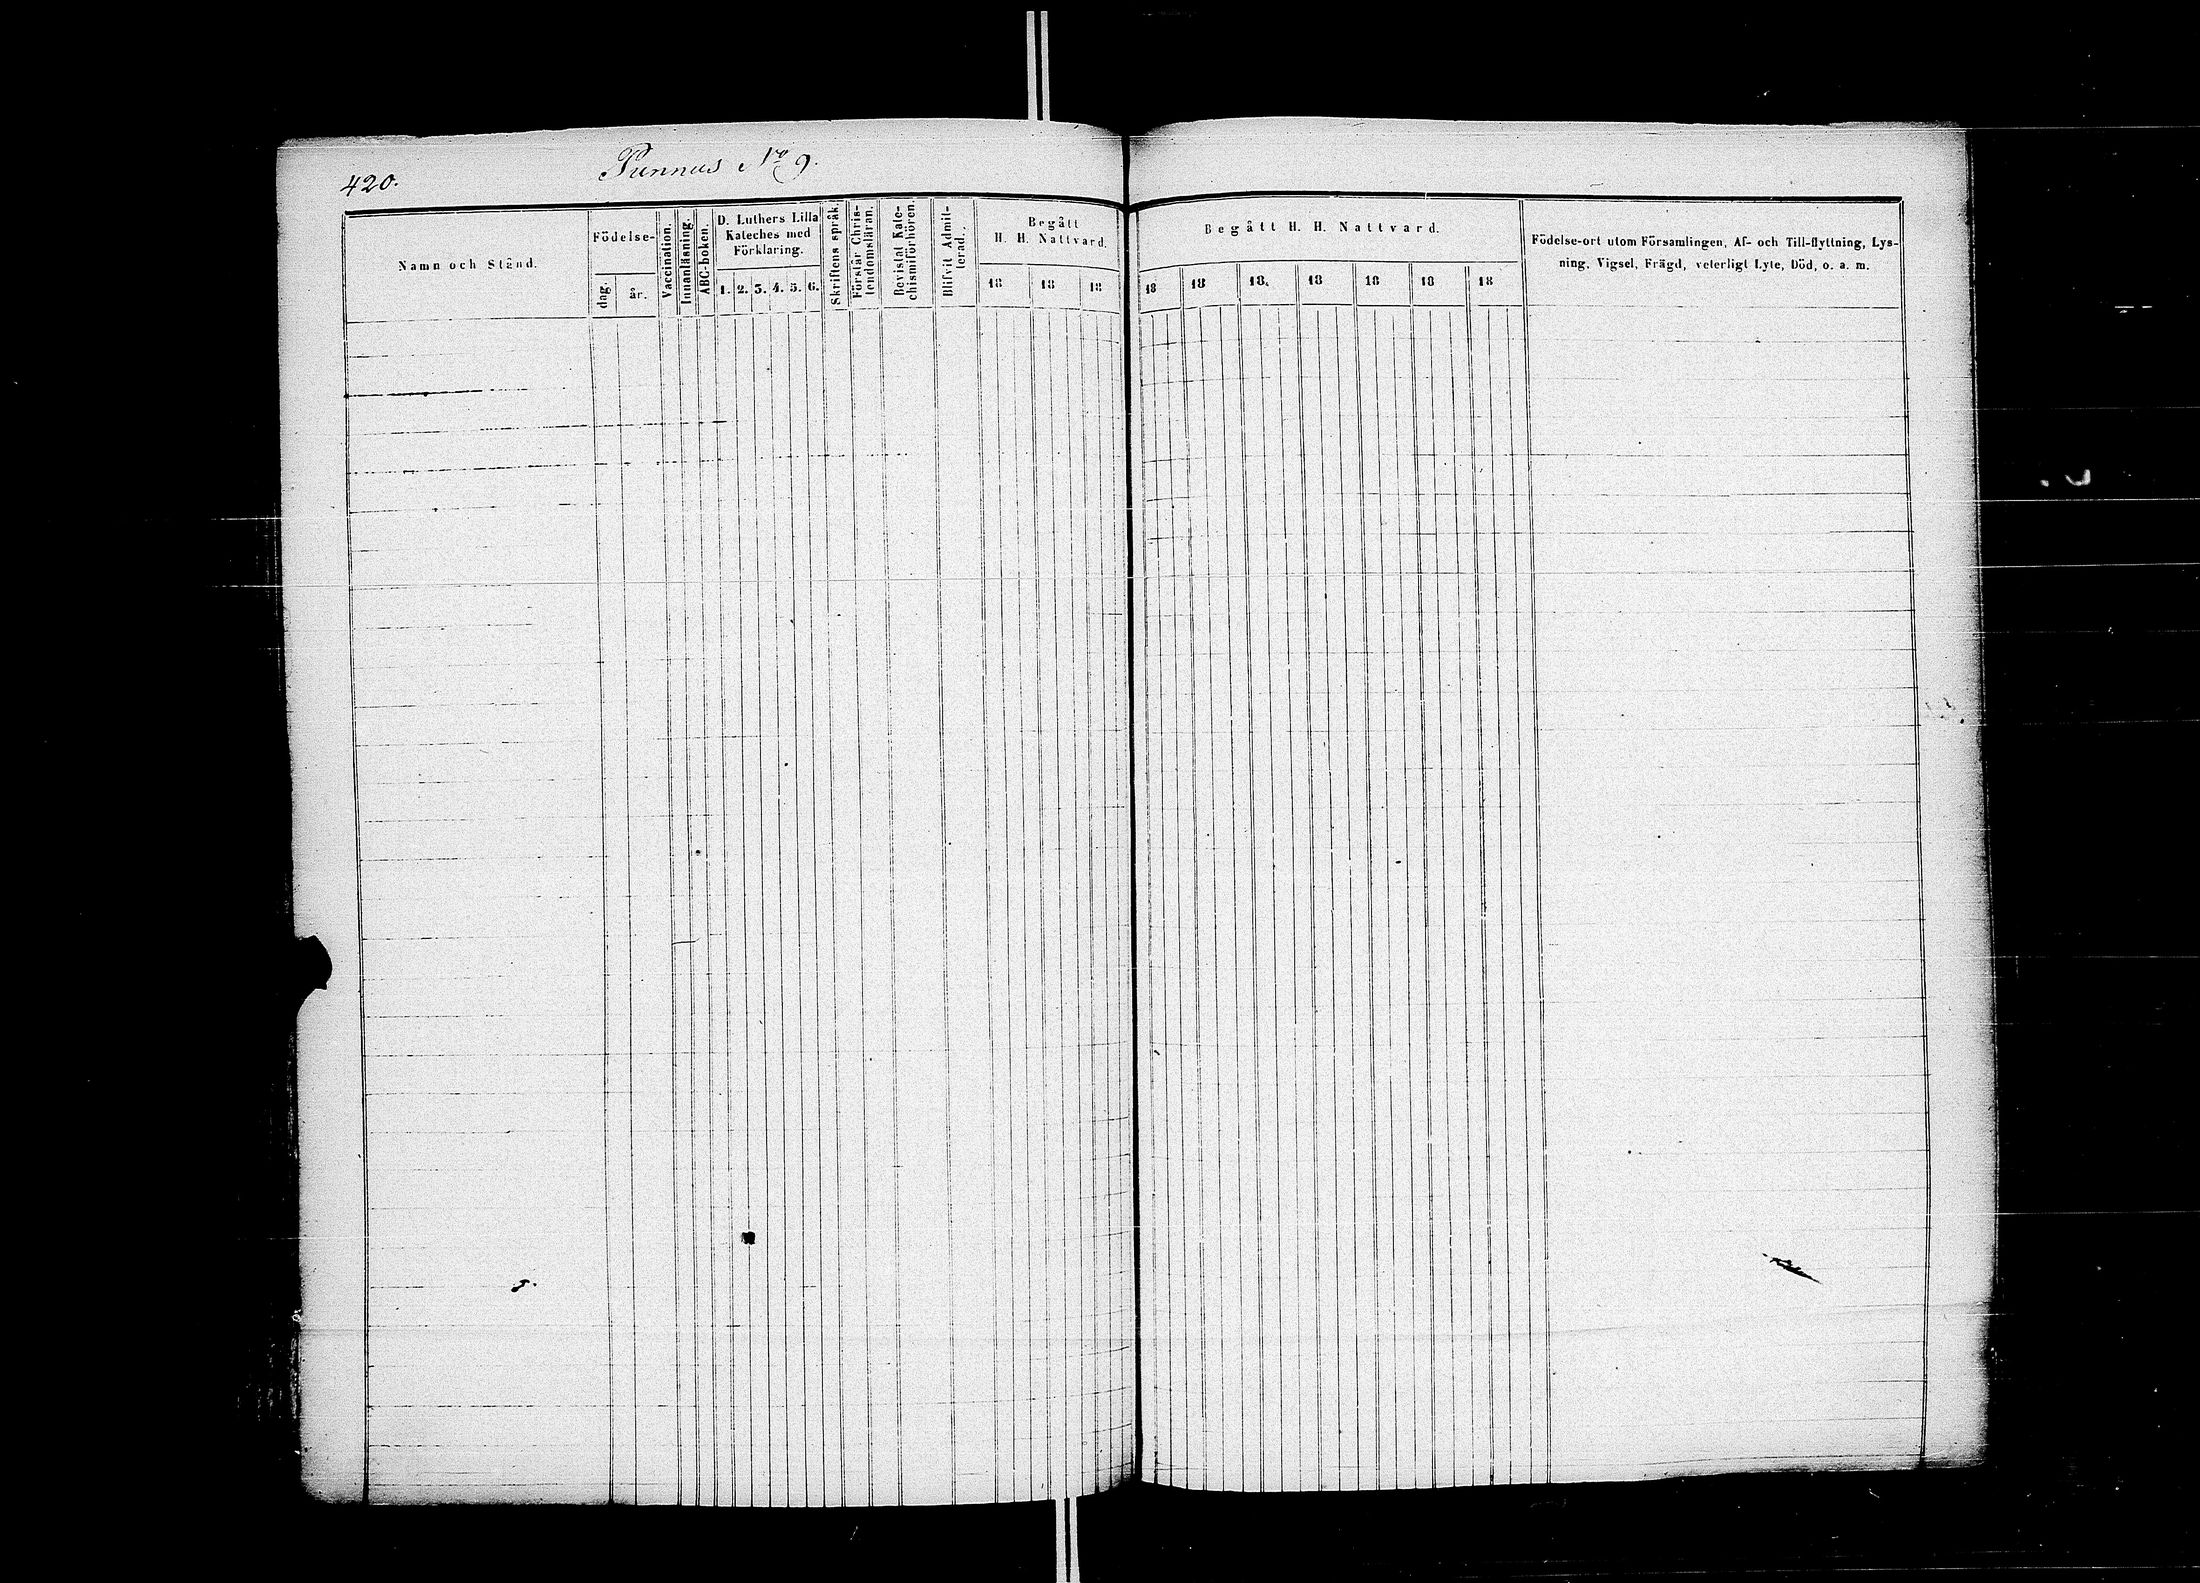 420.
Punnus No 9.
Namn och Stånd.
Födelse-
dag.
år.
Vaccination.
Innanläsning.
ABC-boken.
D. Luthers Lilla
Kateches med
Förklaring.
1. 2. 3. 4. 5. 6.
Skriftens språk.
Förstår Chris-
tendomsläran.
Bevistat Kate-
chismiförhören.
Blifvit Admit-
terad.
Begått
H. H. Nattvard.
18 18 18
Begått H. H. Nattvard.
18 18 18 18 18 18 18
Födelse-ort utom Församlingen, Af- och Till-flyttning, Lys-
ning, Vigsel, Frägd, veterligt Lyte, Död, o. a. m.